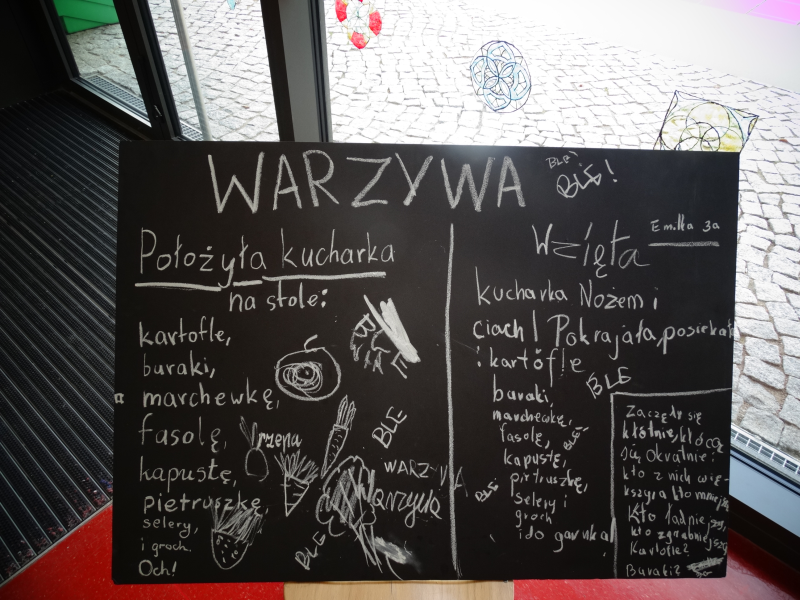 WARZYWA
BLE!
BLE!
Położyła kucharka
na stole:
kartofle,
buraki,
marchewkę,
fasolę,
kapustę,
pietruszkę,
selery,
i groch.
Och!
rzepa
BLE
WARZYWA
Warzywa
BLE
Emilka 3a
Wzięła
kucharka Nożem i
ciach! Pokrajała, posiekała
i kartofle
buraki,
marchewkę,
fasolę,
kapustę,
pietruszkę,
selery i
groch
i do garnka!
BLE
BLE
BLE
Zaczęły się
kłótnie, kłócą
się okrutnie:
kto z nich wię-
kszy, a kto mniejszy,
Kto ładniejszy,
kto zgrabniejszy
Kartofle?
Buraki?